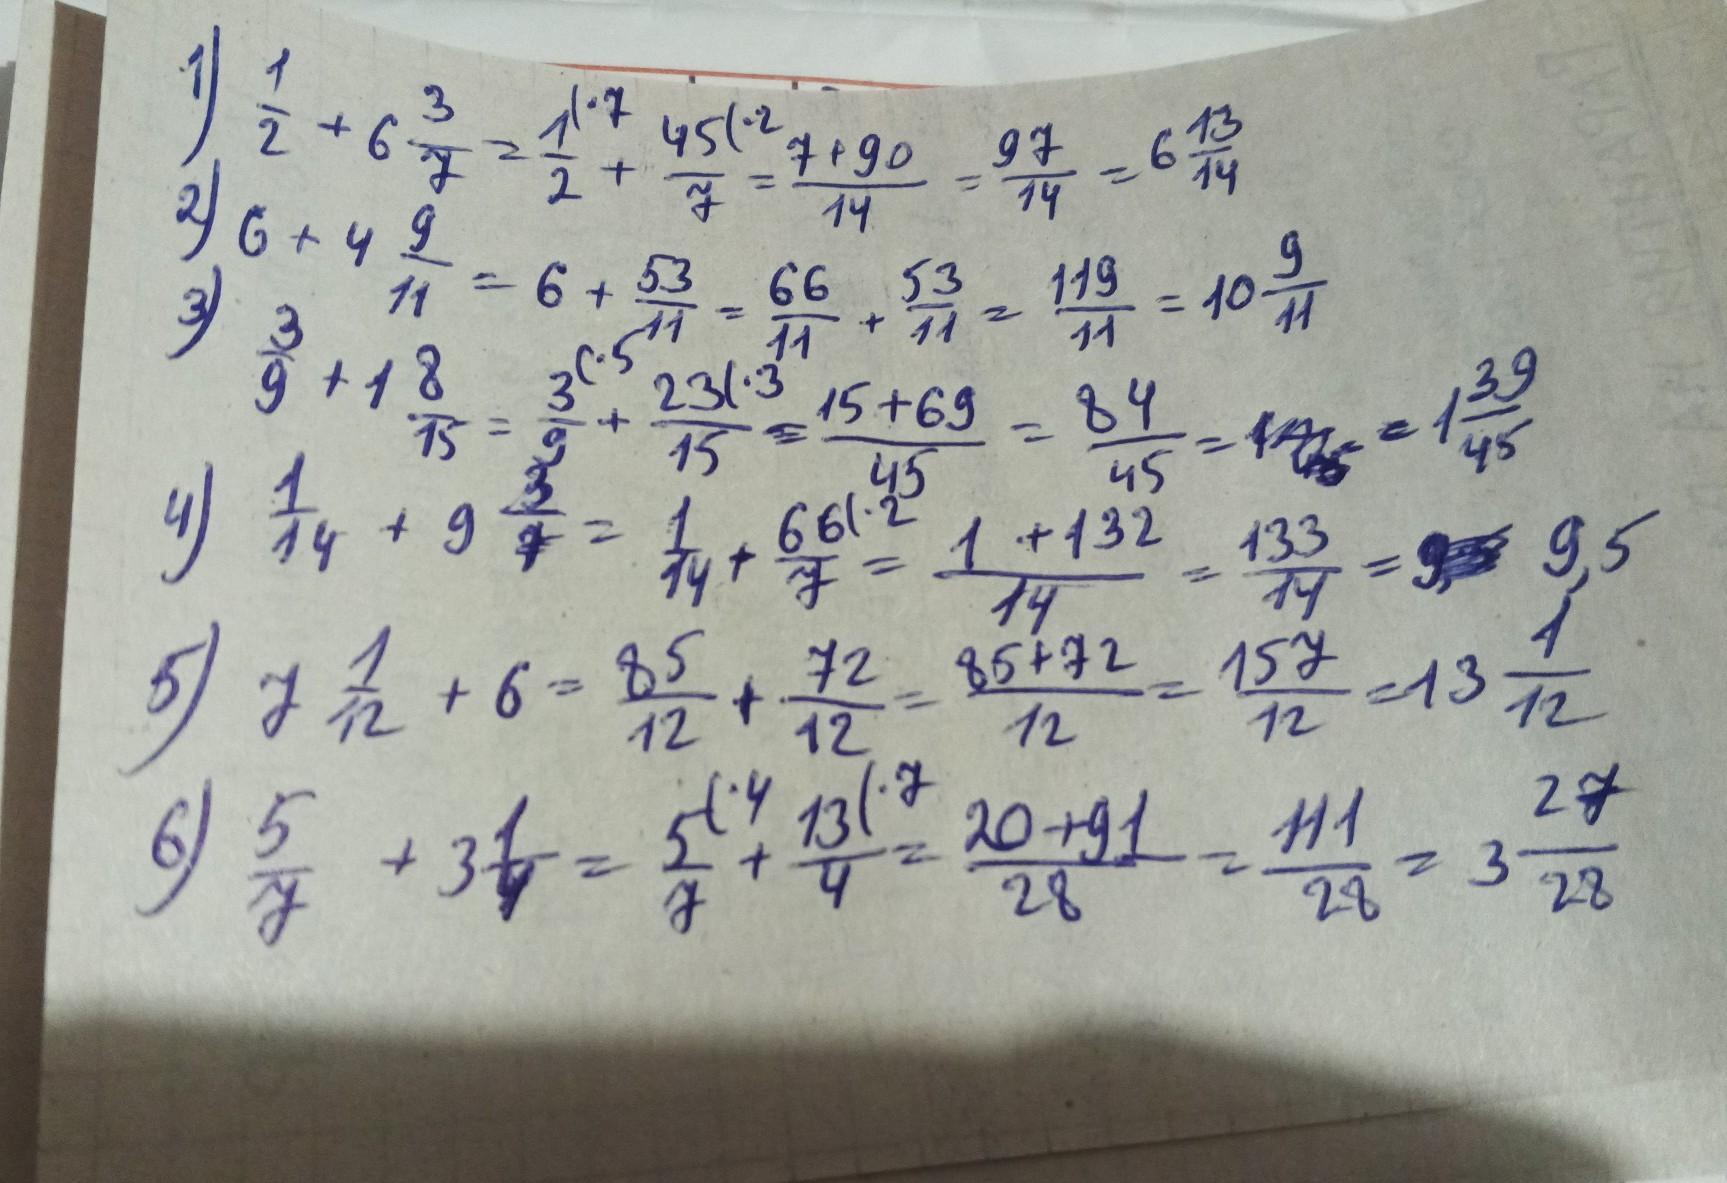 1) 1/2 + 6 3/7 = 1/2 (·7 + 45/7 (·2 = 7+90/14 = 97/14 = 6 13/14
2) 6 + 4 9/11 = 6 + 53/11 = 66/11 + 53/11 = 119/11 = 10 9/11
3) 3/9 + 1 8/15 = 3/9 (·5 + 23/15 (·3 = 15+69/45 = 84/45 = = 1 39/45
4) 1/14 + 9 3/7 = 1/14 + 66/7 (·2 = 1+132/14 = 133/14 = 9,5
5) 7 1/12 + 6 = 85/12 + 72/12 = 85+72/12 = 157/12 = 13 1/12
6) 5/7 + 3 1/4 = 5/7 (·4 + 13/4 (·7 = 20+91/28 = 111/28 = 3 27/28